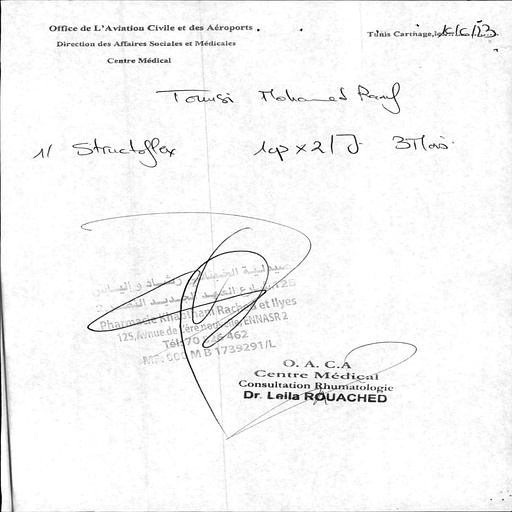 Office de L'Aviation Civile et des Aéroports
Direction des Affaires Sociales et Médicales
Centre Médical
Tunis Carthage, le
Tounsi Mohamed Raouf
1/ Structoflex 1cp x 2/J 3 Mois
Pharmacie Rached et Ilyes
125, Avenue de l'ère nouvelle, ENNASR 2
Tél: 70 462
M B 1739291/L
O. A. C. A
Centre Médical
Consultation Rhumatologie
Dr. Leila ROUACHED